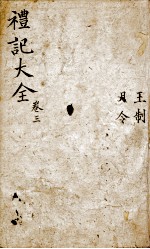 禮記大全
卷三
王制
月令